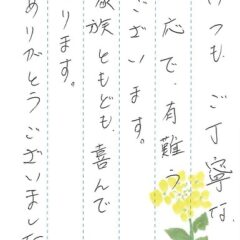 いつも、ご丁寧な
応で、有難う
ございます。
家族ともども、喜んで
ります。
ありがとうございました